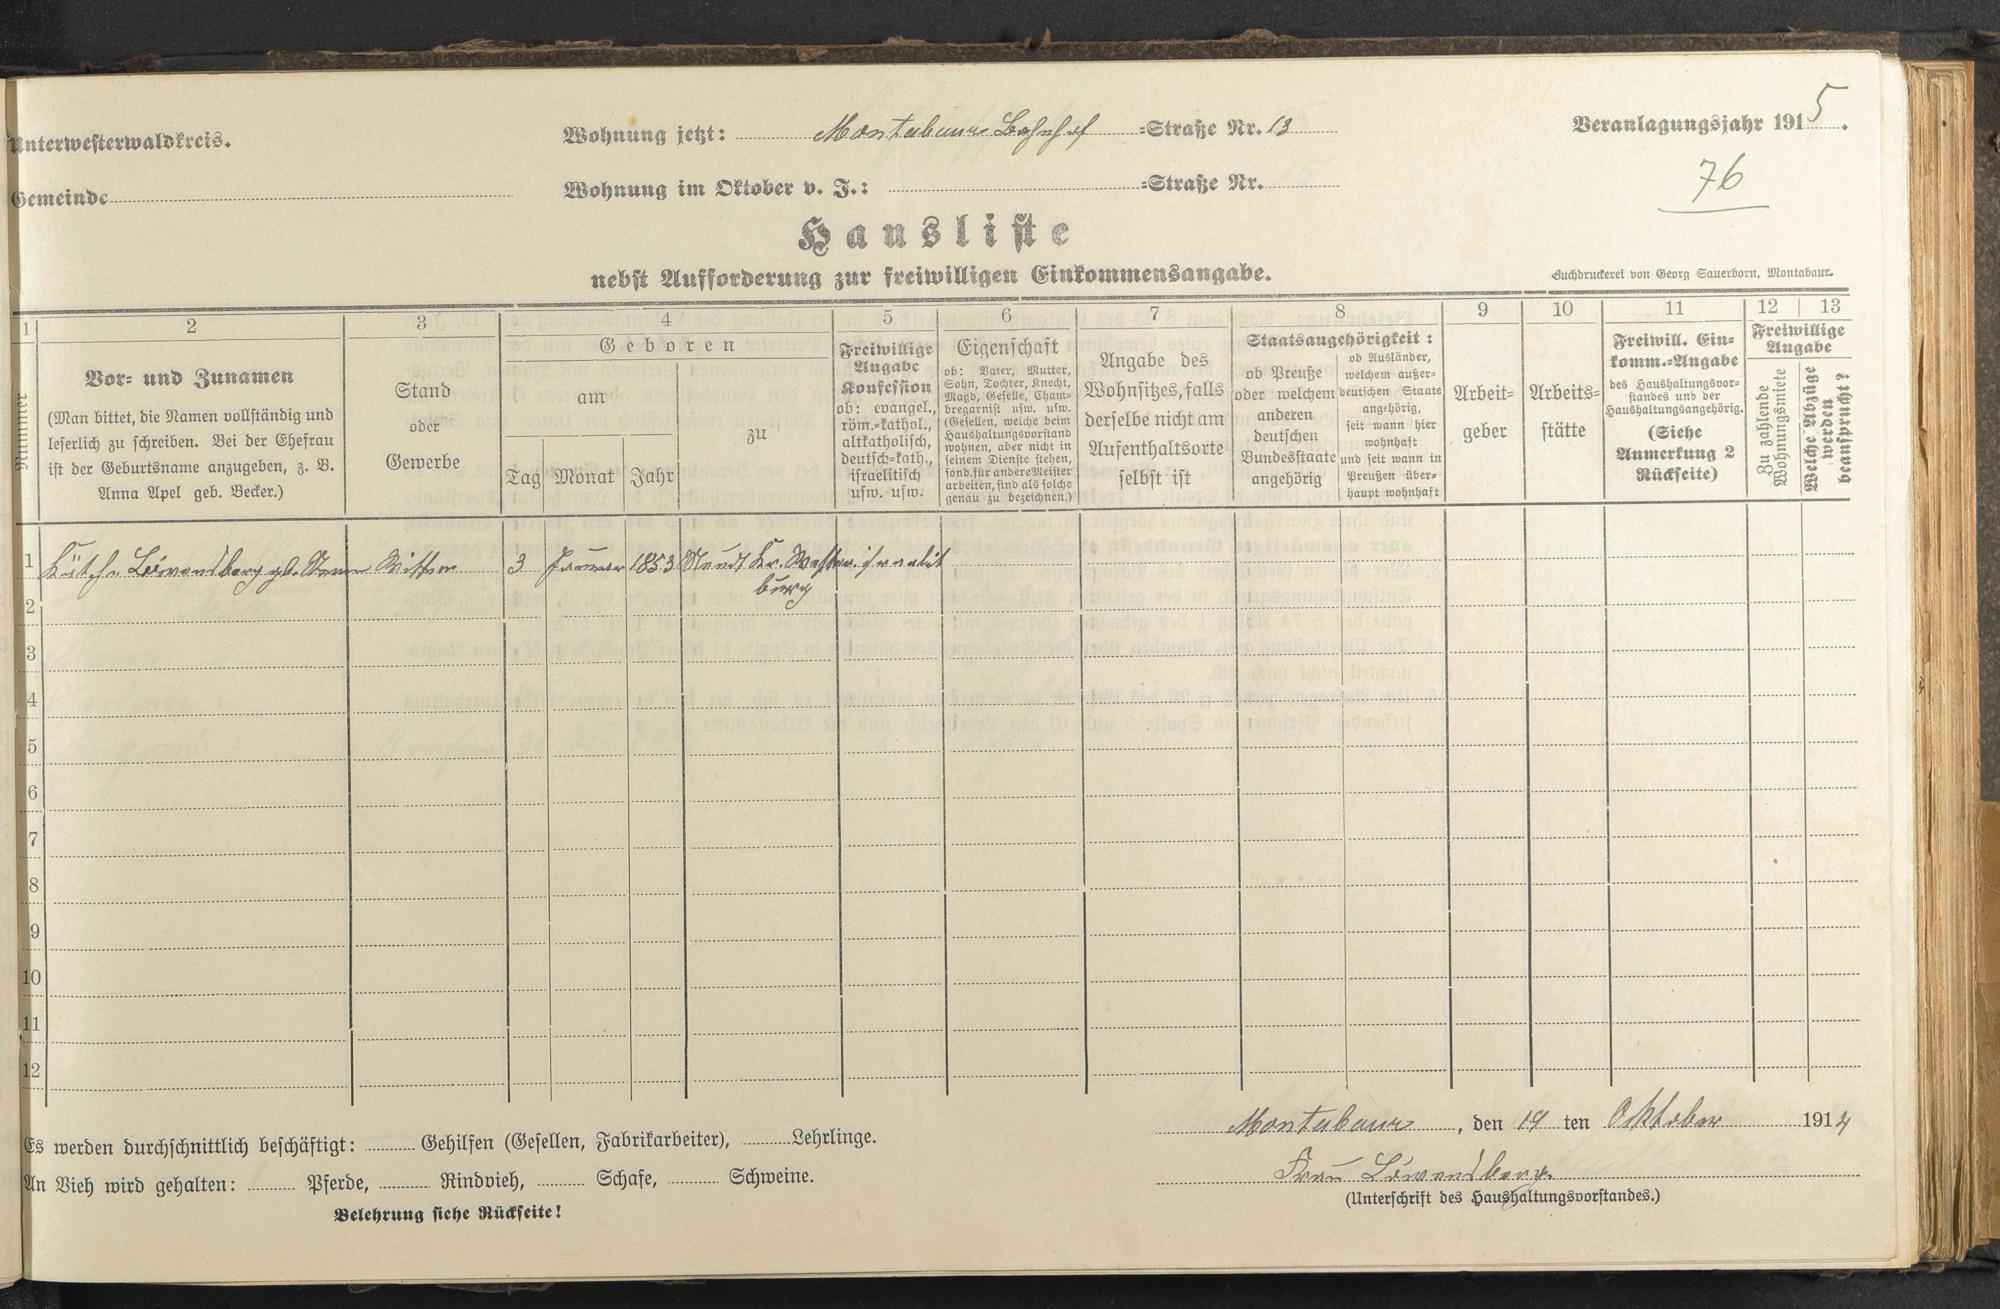 Unterwesterwaldkreis.
Wohnung jetzt: Montabaur Bahnhof -Straße Nr. 13
Veranlagungsjahr 1915.
Gemeinde
Wohnung im Oktober v. J.: -Straße Nr.
76
Hausliste
nebst Aufforderung zur freiwilligen Einkommensangabe.
Buchdruckerei von Georg Sauerborn, Montabaur.
1 2 3 4 5 6 7 8 9 10 11 12 13
Nummer
Vor- und Zunamen
(Man bittet, die Namen vollständig und
leserlich zu schreiben. Bei der Ehefrau
ist der Geburtsname anzugeben, z. B.
Anna Apel geb. Becker.)
Stand
oder
Gewerbe
Geboren
am
Tag Monat Jahr
zu
Freiwillige
Angabe
Konfession
ob: evangel.,
röm.-kathol.,
altkatholisch,
deutsch-kath.,
israelitisch
usw. usw.
Eigenschaft
ob: Vater, Mutter,
Sohn, Tochter, Knecht,
Magd, Geselle, Cham-
bregarnist usw. usw.
(Gesellen, welche beim
Haushaltungsvorstand
wohnen, aber nicht in
seinem Dienste stehen,
sond. für andere Meister
arbeiten, sind als solche
genau zu bezeichnen.)
Angabe des
Wohnsitzes, falls
derselbe nicht am
Aufenthaltsorte
selbst ist
Staatsangehörigkeit:
ob Preuße
oder welchem
anderen
deutschen
Bundesstaate
angehörig
ob Ausländer,
welchem außer-
deutschen Staate
angehörig,
seit wann hier
wohnhaft
und seit wann in
Preußen über-
haupt wohnhaft
Arbeit-
geber
Arbeits-
stätte
Freiwill. Ein-
komm.-Angabe
des Haushaltungsvor-
standes und der
Haushaltungsangehörig.
(Siehe
Anmerkung 2
Rückseite)
Freiwillige
Angabe
Zu zahlende
Wohnungsmiete
Welche Abzüge
werden
gewünscht?
1 Löwensberg gb. Witwe 3 Januar 1853 Meudt Kr. Wester- israelit
burg
2
3
4
5
6
7
8
9
10
11
12
Es werden durchschnittlich beschäftigt: Gehilfen (Gesellen, Fabrikarbeiter), Lehrlinge.
An Vieh wird gehalten: Pferde, Rindvieh, Schafe, Schweine.
Belehrung siehe Rückseite!
Montabaur, den 19 ten Oktober 1914
Frau Löwensberg.
(Unterschrift des Haushaltungsvorstandes.)